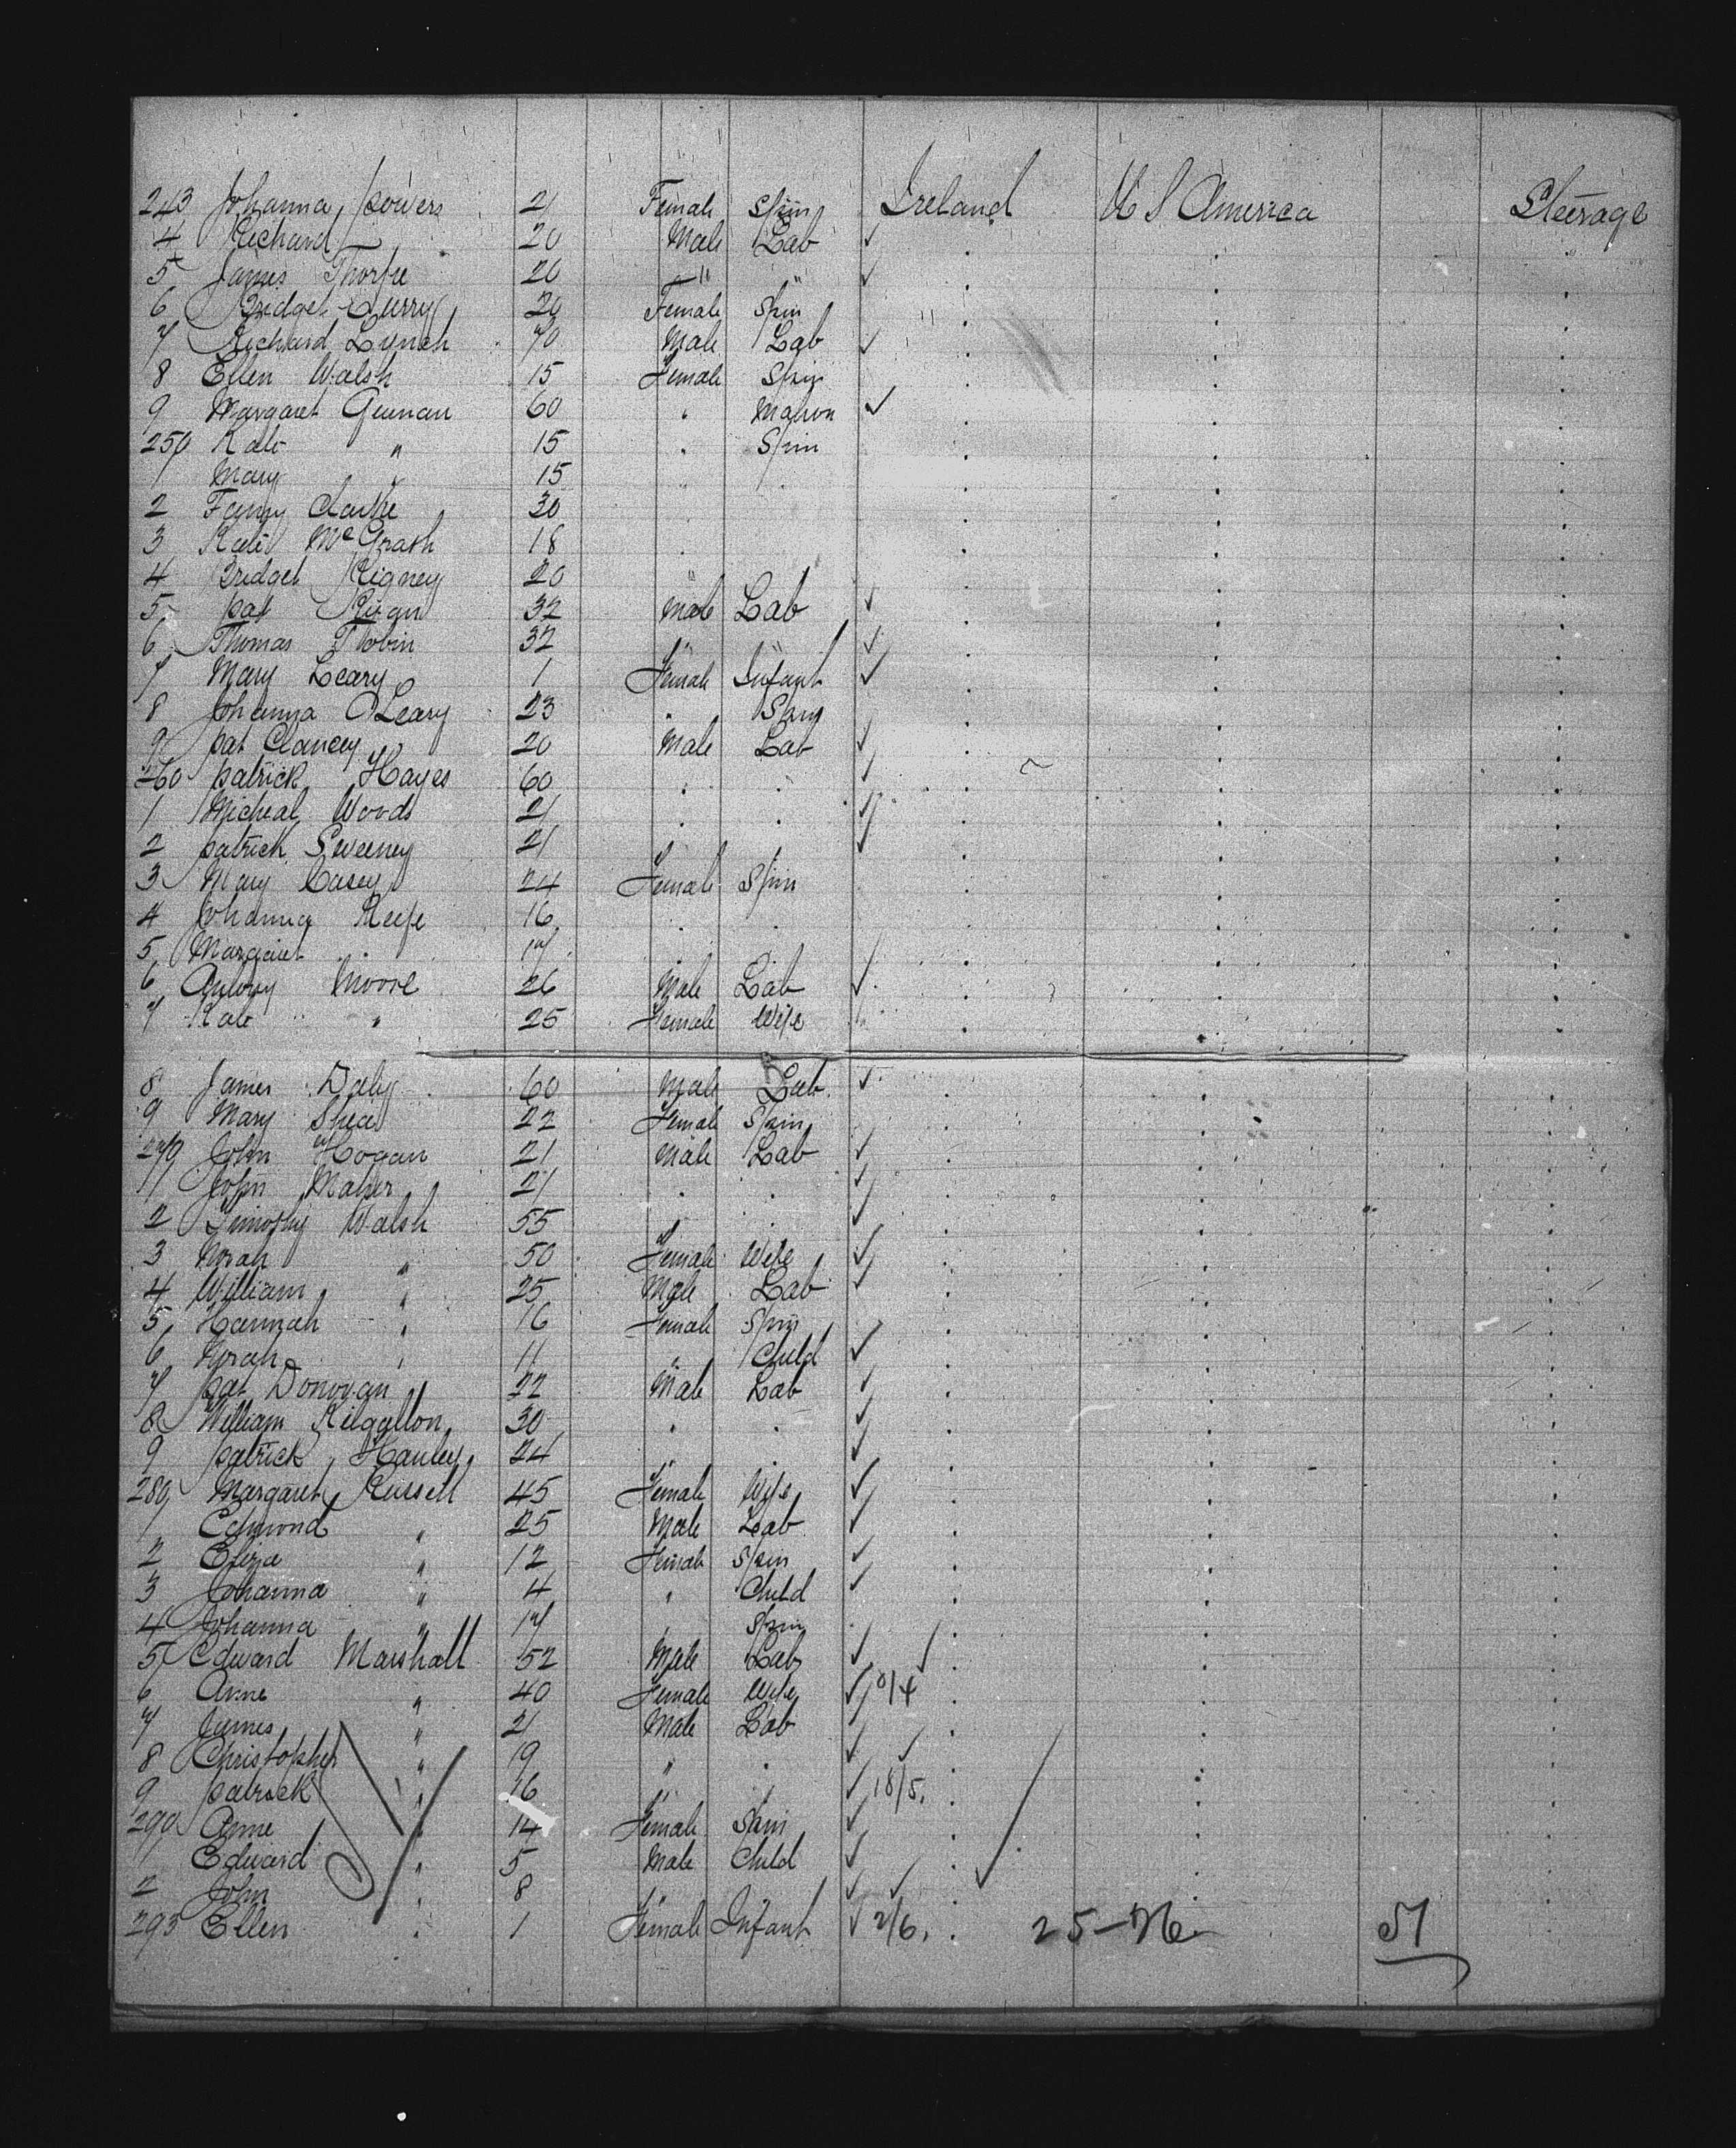 243 Johanna Powers 21 Female Spin Ireland U S America Steerage
4 Richard " 20 Male Lab ✓
5 James Thorpe 20 " " ✓
6 Bridget Curry 20 Female Spin
7 Richard Lynch 70 Male Lab ✓
8 Ellen Walsh 15 Female Spin
9 Margaret 60 " Matron ✓
250 Kate " 15 " Spin
1 Mary " 15
2 Fanny Clarke 30
3 Kate McGrath 18
4 Bridget Rigney 20
5 Pat 32 Male Lab ✓
6 Thomas Tobin 32 " " ✓
7 Mary Leary 1 Female Infant ✓
8 Johanna O'Leary 23 " Spin
9 Pat Clancey 20 Male Lab ✓
260 Patrick Hayes 60 " " ✓
1 Micheal Woods 21 " " ✓
2 Patrick Sweeney 21 " " ✓
3 Mary Casey 24 Female Spin
4 Johanna Keefe 16 " "
5 Margaret " 17 " "
6 Moore 26 Male Lab ✓
7 Kate " 25 Female Wife
8 James Daly 60 Male Lab ✓
9 Mary Shea 22 Female Spin
270 John Hogan 21 Male Lab ✓
1 John Maher 21 " " ✓
2 Timothy Walsh 55 " " ✓
3 Norah " 50 Female Wife ✓
4 William " 25 Male Lab ✓
5 Hannah " 16 Female Spin
6 Norah " 11 " Child ✓
7 Pat Donovan 22 Male Lab ✓
8 William Kilgallon 30 " " ✓
9 Patrick Hanley 24 " " ✓
280 Margaret Russell 45 Female Wife ✓
1 Edmond " 25 Male Lab ✓
2 Eliza " 12 Female Spin ✓
3 Johanna " 4 " Child ✓
4 Johanna " 17 " Spin
5 Edward Marshall 52 Male Lab ✓ ✓
6 Anne " 40 Female Wife ✓
7 James " 21 Male Lab
8 Christopher " 19 " " ✓ ✓
9 Patrick " 16 " " ✓ 18/5.
290 Anne " 14 Female Spin ✓
1 Edward " 5 Male Child ✓
2 John " 8 ✓ ✓
293 Ellen " 1 Female Infant ✓ 2/6. 51